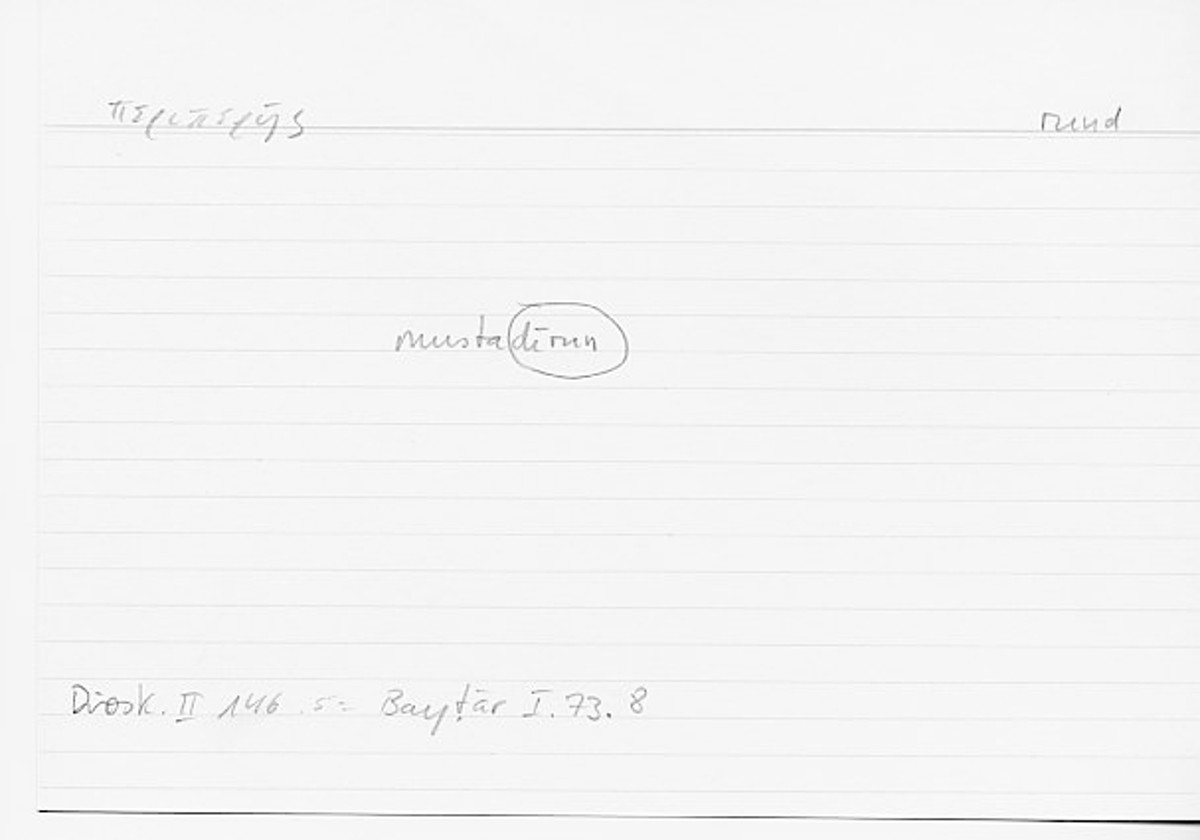 περιπερής rund
mustadīrun
Diosk. II 146.5 = Bayṭār I.73.8